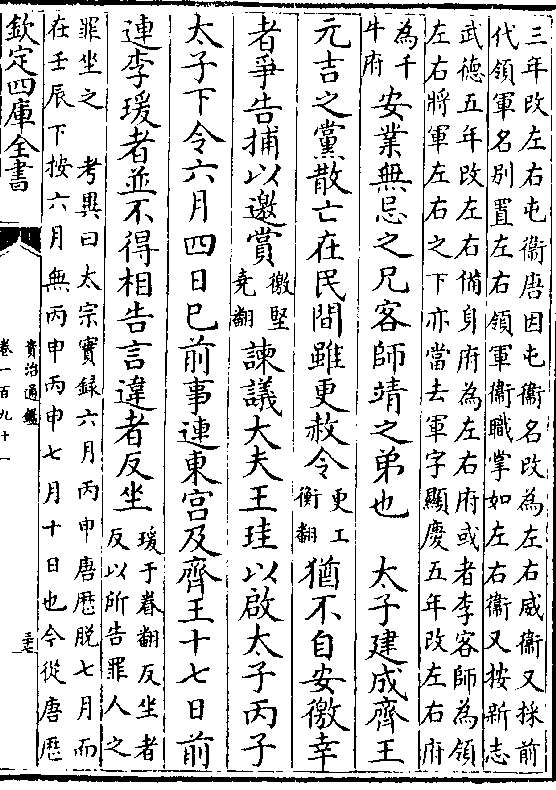 三年改左右屯衞唐因屯衞名改為左右威衞又採前
代領軍名别置左右領軍衞職掌如左右衞又按新志
武徳五年改左右備身府為左右府或者李客師為領
左右將軍左右之下亦當去軍字顯慶五年改左右府
為千
牛府
安業無忌之兄客師靖之弟也　太子建成齊王
元吉之黨散亡在民間雖更赦令
更工
衡翻
猶不自安徼幸
者爭告捕以邀賞
徼堅
堯翻
諫議大夫王珪以啟太子丙子
太子下令六月四日已前事連東宫及齊王十七日前
連李瑗者並不得相告言違者反坐
瑗于眷翻反坐者
反以所告罪人之
罪坐之　考異曰太宗實録六月丙申唐厯脱七月而
在壬辰下按六月無丙申丙申七月十日也今從唐厯
欽定四庫全書
資治通鑑
卷一百九十一